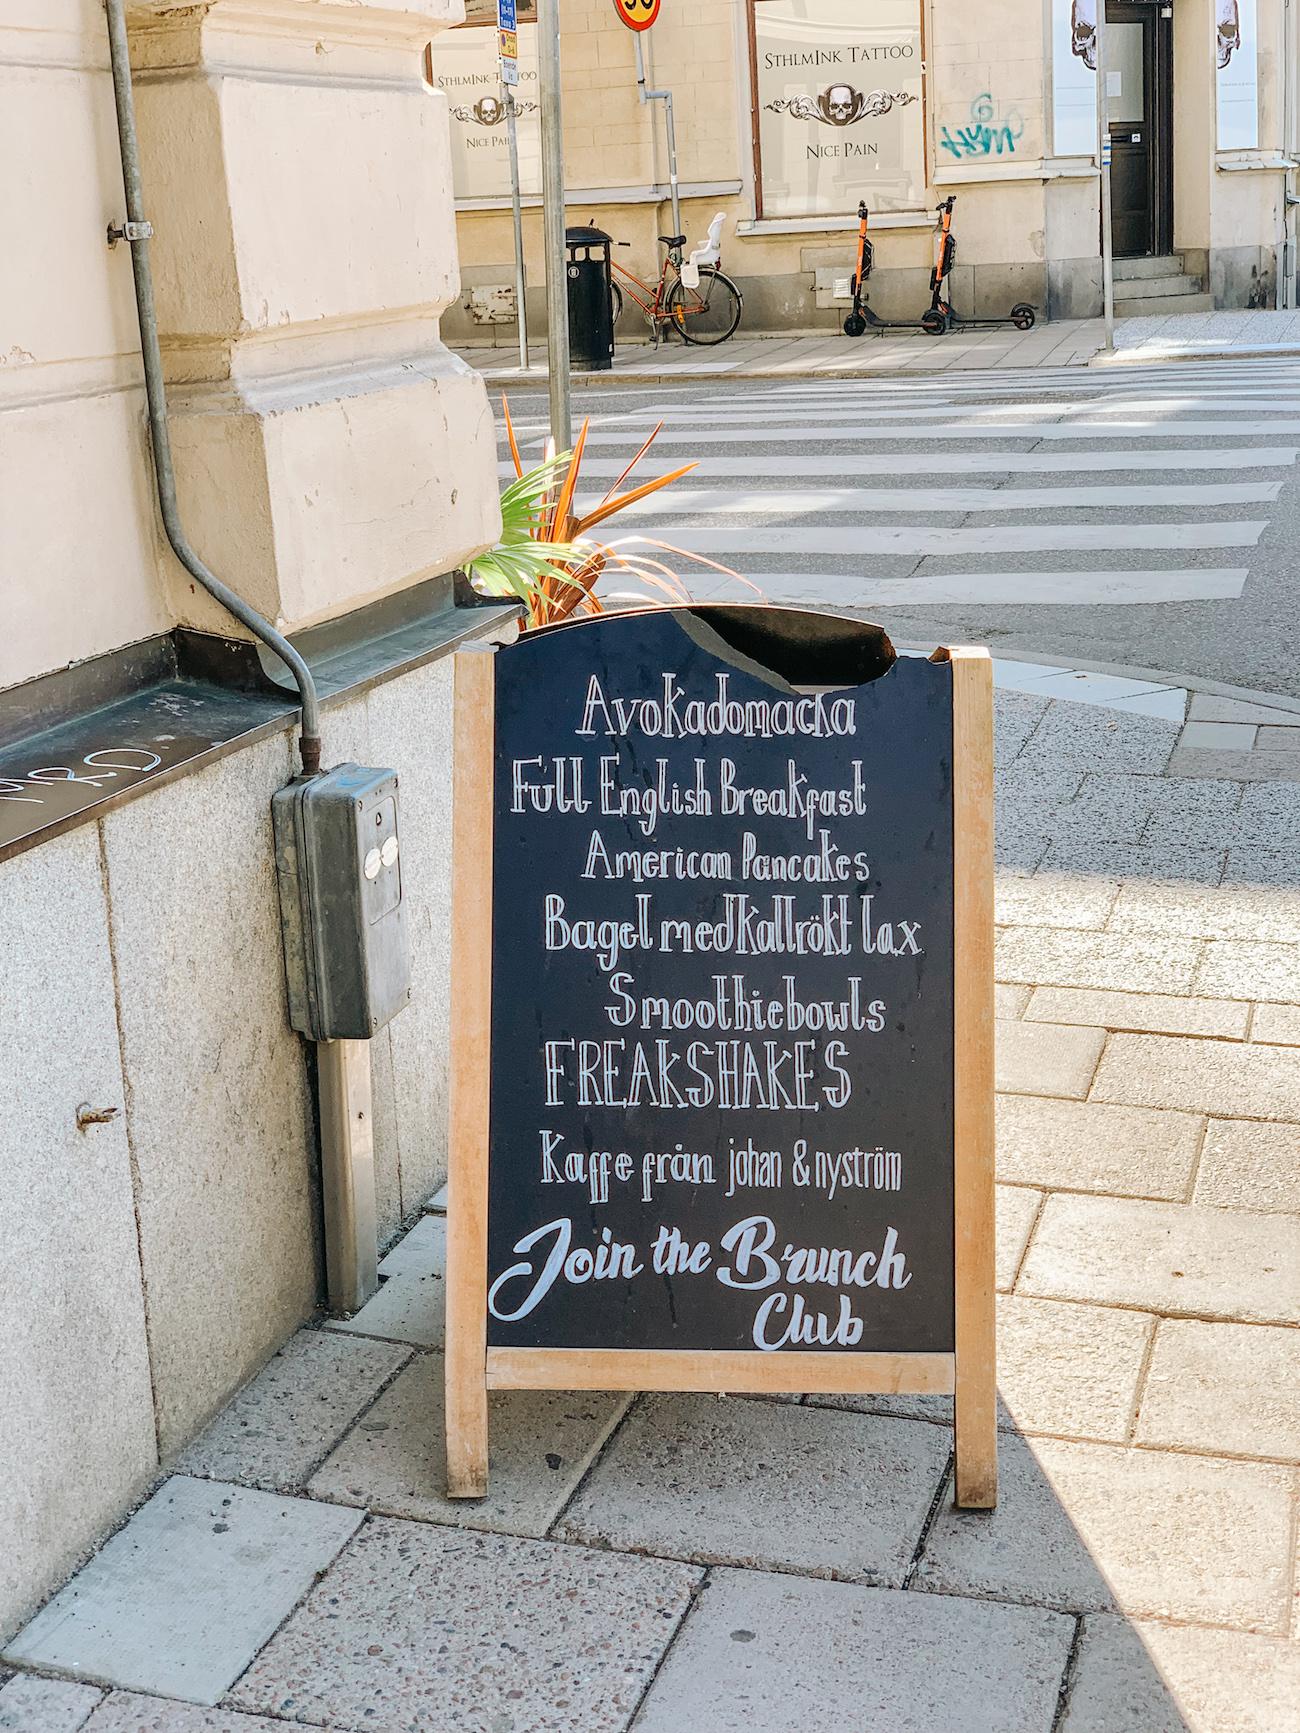 STHLMINK TATTOO
NICE PAIN
STHLMINK TATTOO
NICE PAIN
Avokadomacka
Full English Breakfast
American Pancakes
Bagel med kallrökt lax
Smoothiebowls
FREAKSHAKES
Kaffe från johan & nyström
Join the Brunch
Club